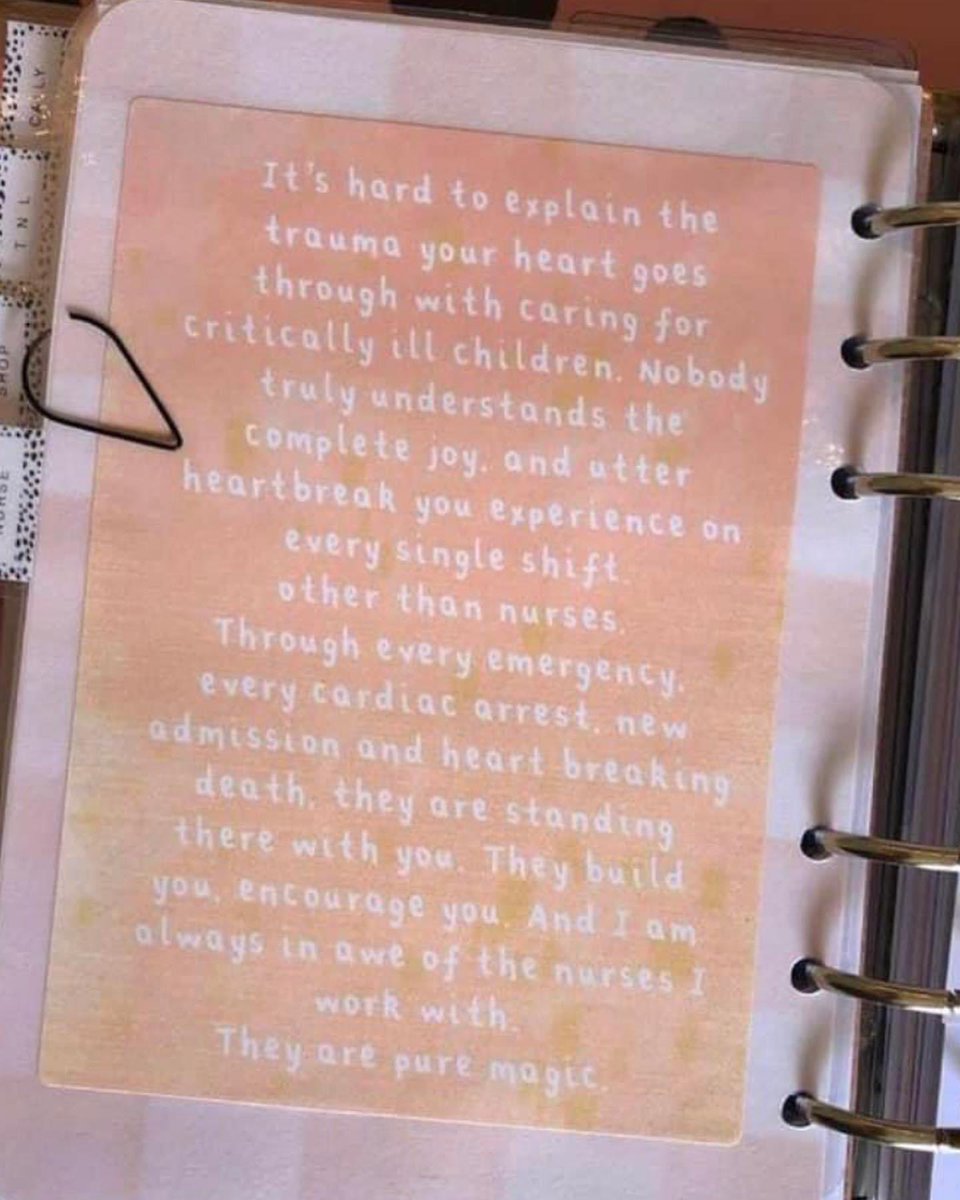 It's hard to explain the
trauma your heart goes
through with caring for
critically ill children. Nobody
truly understands the
complete joy, and utter
heartbreak you experience on
every single shift.
other than nurses.
Through every emergency,
every cardiac arrest, new
admission and heart breaking
death, they are standing
there with you. They build
you, encourage you. And I am
always in awe of the nurses I
work with.
They are pure magic.
CALLY
TNL
SHOP
NURSE